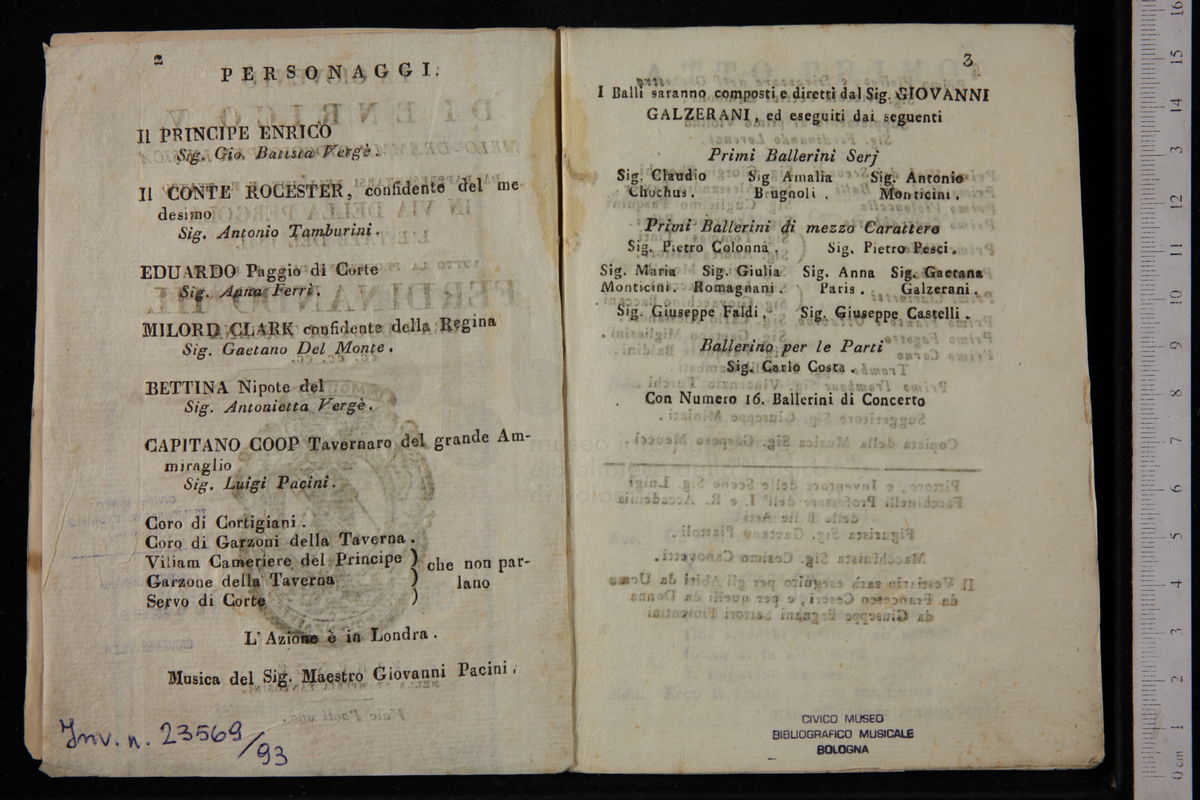 2
PERSONAGGI.
Il PRINCIPE ENRICO
Sig. Gio. Batista Vergè.
Il CONTE ROCESTER, confidente del me
desimo
Sig. Antonio Tamburini.
EDUARDO Paggio di Corte
Sig. Anna Ferri.
MILORD CLARK confidente della Regina
Sig. Gaetano Del Monte.
BETTINA Nipote del
Sig. Antonietta Vergè.
CAPITANO COOP Tavernaro del grande Am-
miraglio
Sig. Luigi Pacini.
Coro di Cortigiani.
Coro di Garzoni della Taverna.
Viliam Cameriere del Principe ) che non par-
Garzone della Taverna ) lano
Servo di Corte )
L'Azione è in Londra.
Musica del Sig. Maestro Giovanni Pacini.
Inv. n. 23569/93
3
I Balli saranno composti e diretti dal Sig. GIOVANNI
GALZERANI, ed eseguiti dai seguenti
Primi Ballerini Serj
Sig. Claudio Sig Amalia Sig. Antonio
Chochus. Brugnoli. Monticini.
Primi Ballerini di mezzo Carattere
Sig. Pietro Colonna. Sig. Pietro Pesci.
Sig. Maria Sig. Giulia Sig. Anna Sig. Gaetana
Monticini. Romagnani. Paris. Galzerani.
Sig. Giuseppe Faldi. Sig. Giuseppe Castelli.
Ballerino per le Parti
Sig. Carlo Costa.
Con Numero 16. Ballerini di Concerto
CIVICO MUSEO
BIBLIOGRAFICO MUSICALE
BOLOGNA
0 cm 1 2 3 4 5 6 7 8 9 10 11 12 13 14 15 16